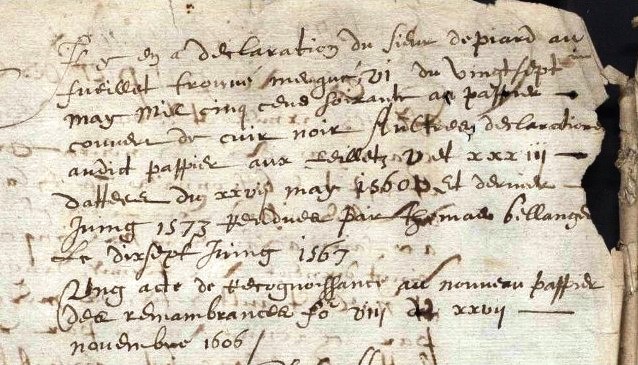 Il y en a declaration du sieur depiard au
fueillet trouvé merqué vi du vingt sept
may mil cinq cens soixante au pappier
couvert de cuir noir Aultres declarations
audit pappier aux feilletz v et xxxiii
dattees du xxvij may 1560 Et dernier
Juing 1573 Rendues par thomas bellanger
Le dixsept Juing 1567
Ung acte de Recognoissance au nouveau pappier
des remambrances fo viij xxvij
novembre 1606